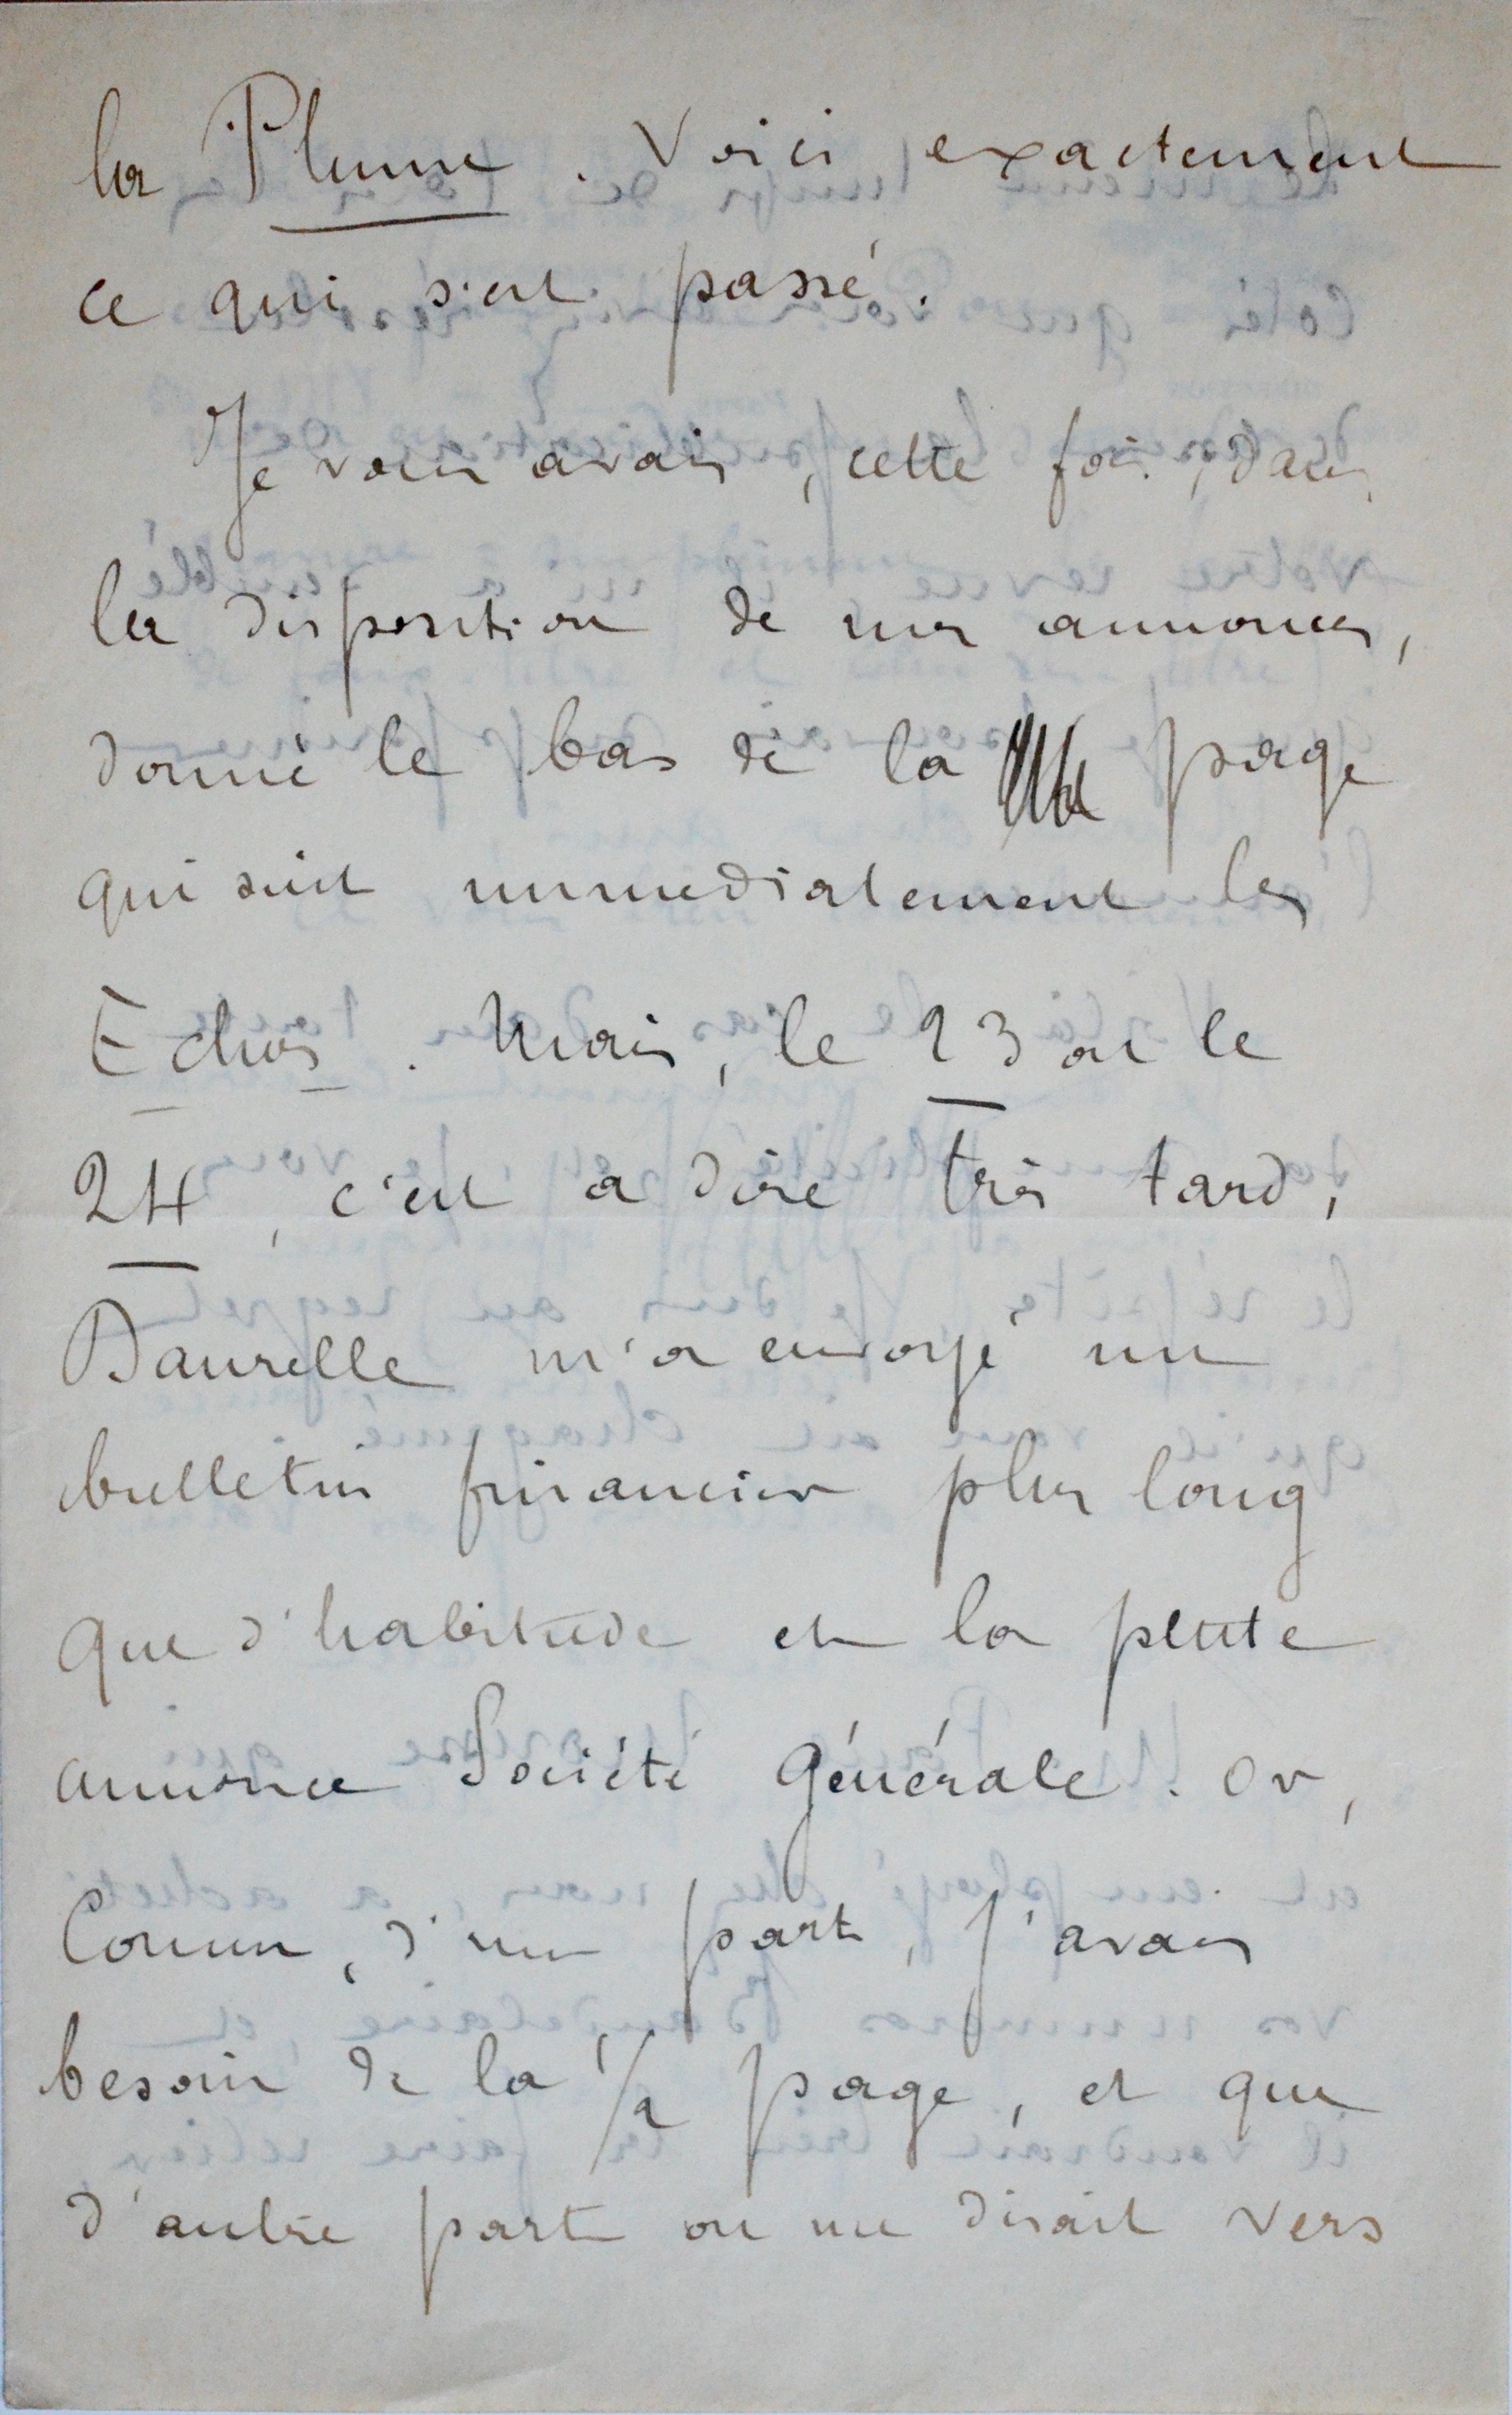 la Plume. Voici exactement
ce qui s'est passé.
Je vous avais, cette fois, dans
la disposition de mes annonces,
donné le bas de la page
qui suit immediatement les
Echos. Mais, le 23 ou le
24, c'est a dire très tard,
Daurelle m'a envoyé un
bulletin financier plus long
que d'habitude et la petite
annonce Société Générale. Or,
Comme, d'une part, j'avais
besoin de la 1/2 page, et que
d'autre part on me disait vers